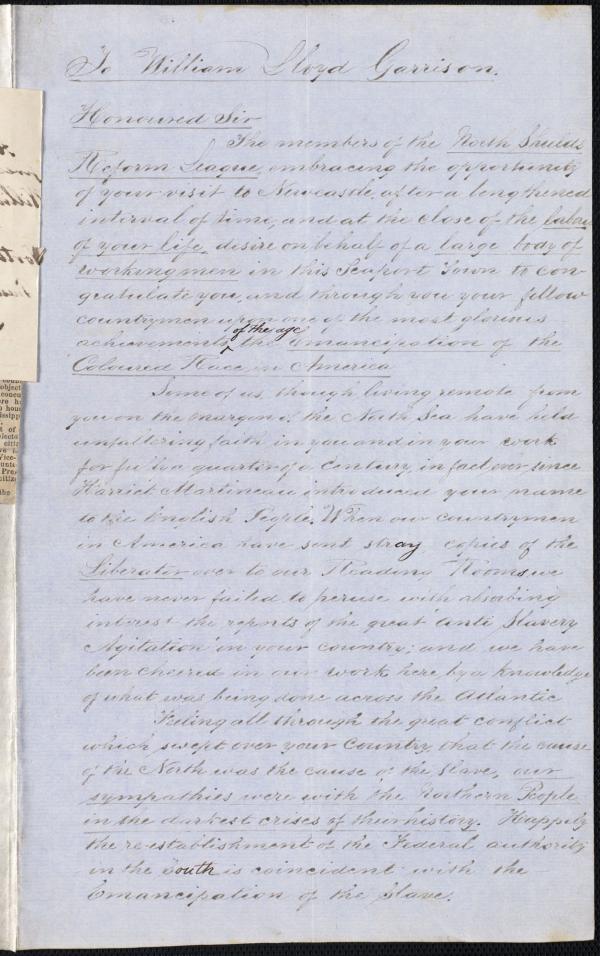 To William Lloyd Garrison.
Honoured Sir
The members of the North Shields
Reform League, embracing the opportunity
of your visit to Newcastle, after a lengthened
interval of time, and at the close of the labour
of your life, desire on behalf of a large body of
workingmen in this Seaport Town to con-
gratulate you, and through you your fellow
countrymen upon one of the most glorious
achievements of the age, the emancipation of the
Coloured Race in America
Some of us, though living remote from
you on the margin of the North Sea have held
unfaltering faith in you and in your work
for full a quarter of a Century, in fact ever since
Harriet Martineau introduced your name
to the English People. When our countrymen
in America have sent stray copies of the
Liberator over to our Reading Rooms we
have never failed to peruse with absorbing
interest the reports of the great 'anti Slavery
Agitation' in your country; and we have
been cheered in our work here by a knowledge
of what was being done across the Atlantic
Feeling all through the great conflict
which swept over your Country, that the cause
of the North was the cause of the Slave, our
sympathies were with the Northern People
in the darkest crises of their history. Happily
the re-establishment of the Federal authority
in the South is coincident with the
Emancipation of the Slave.